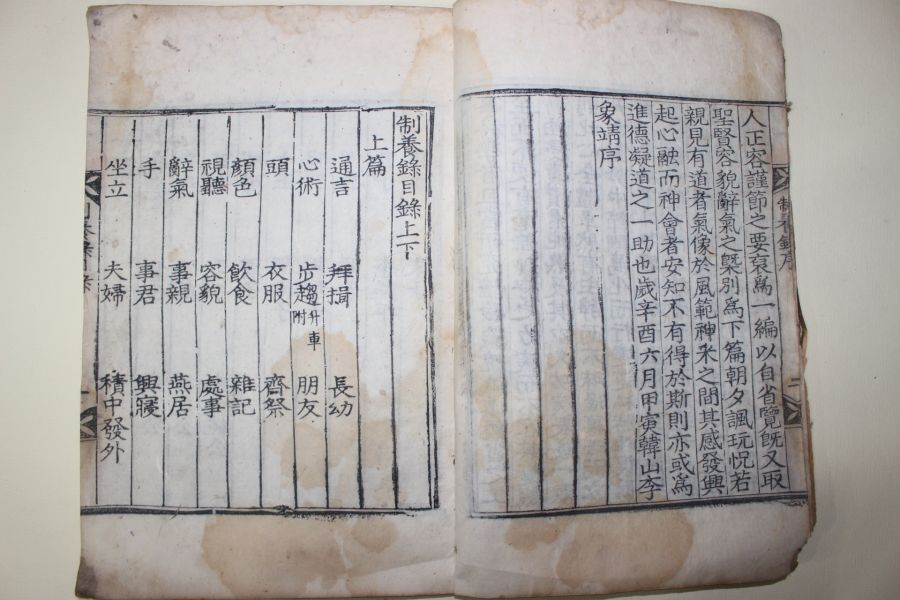 人正容謹節之要裒爲一編以自省覽旣又取
聖賢容貌辭氣之槩別爲下篇朝夕諷玩怳若
親見有道者氣像於風範神采之間其感發興
起心融而神會者安知不有得於斯則亦或爲
進德凝道之一助也歲辛酉六月甲寅韓山李
象靖序
制養錄序
二
制養錄目錄上下
上篇
通言 拜揖 長幼
心術 步趨 升車附 朋友
頭 衣服 齊祭
顔色 飮食 雜記
視聽 容貌 處事
辭氣 事親 燕居
手 事君 興寢
坐立 夫婦 積中發外